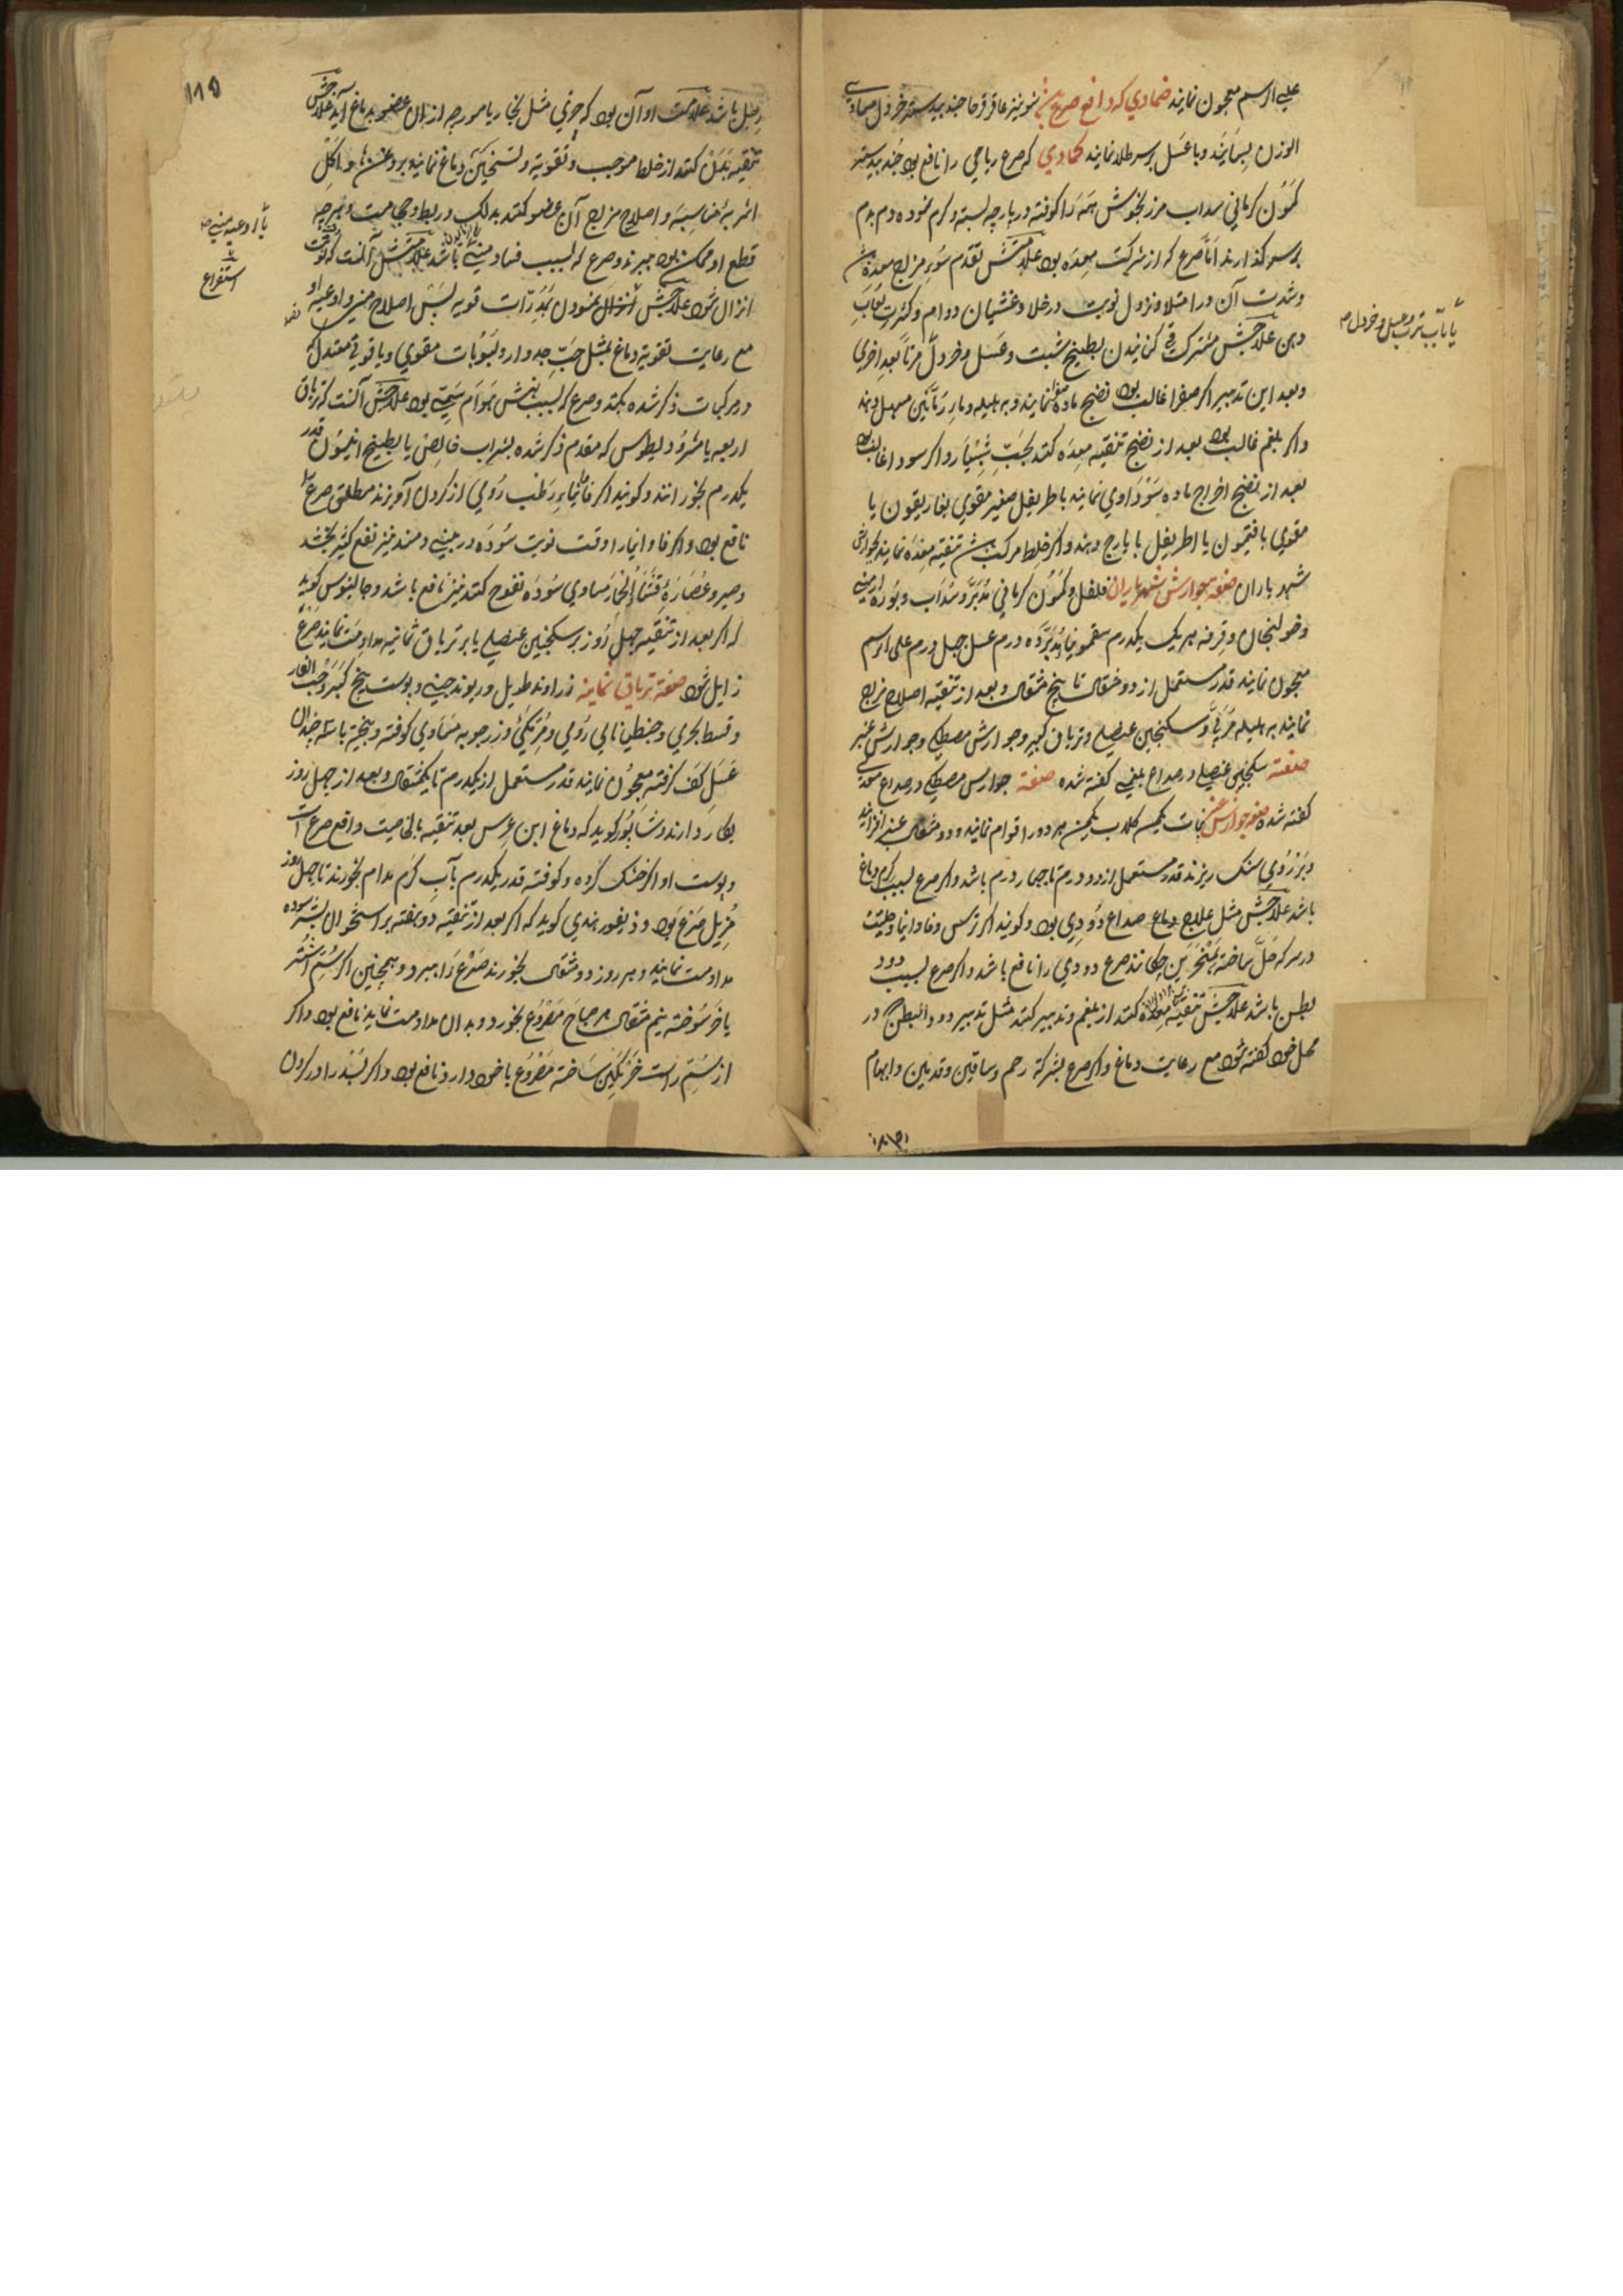 علی الرسم معجون نمایند ضمادی که دافع صرع شونیز عاقرقرحا جندبیدستر خردل مساوی
الوزن بسایند و با عسل بر سر طلا نمایند کمادی که صرع ریاحی را نافع بود جندبیدستر
کمون کرمانی سداب مرزنجوش همه را کوفته در پارچه بسته و گرم نموده دم بدم
بر سر گذارند اما صرع که از شرکت معده بود علامتش تقدم سوء مزاج معده
و شدت آن در امتلا و نزول نوبت در خلا و غشیان دوام و کثرت لعاب
دهن علاجش مشترک قی کنانیدن بطبیخ شبت و عسل و خردل مرتاً بعد اخری
یا بآب ترب و عسل و خردل
و بعد این تدبیر اگر صفرا غالب بود نضج ماده صفرا نمایند و به هلیله و ماء رمانین مسهل دهند
و اگر بلغم غالب بود بعد از نضج تنقیه معده کنند بحب شبیار و اگر سودا غالب بود
بعد از نضج اخراج ماده سوداوی نمایند باطریفل صغیر مقوی بغاریقون یا
مقوی بافتیمون یا اطریفل با یارج دهند و اگر خلط مرکب تنقیه معده نمایند بجوارش
شهریاران صفة جوارش شهریاران فلفل و کمون کرمانی مدبر و سداب و بوره ارمنی
و خولنجان و قرفه هر یک یکدرم سقمونیا ده درم عسل چهل درم علی الرسم
معجون نمایند قدر مستعمل از دو مثقال تا پنج مثقال و بعد از تنقیه اصلاح مزاج
نمایند به هلیله مربی و سکنجبین عنصلی و تریاق کبیر و جوارش مصطکی و جوارش عنبر
صفة سکنجبین عنصلی در صداع بلغمی گفته شده صفة جوارش مصطکی در صداع معدی
گفته شده صفة جوارش عنبر نبات یکمن گلاب یکمن هر دو را قوام نمایند و دو مثقال عنبر
و بر روی سنگ ریزند قدر مستعمل از دو درم تا چهار درم باشد و اگر صرع بسبب کرم دماغ
باشد علاجش مثل علاج صداع دودی بود و گویند اگر ترمس و فاوانیا و حلتیت
در سرکه حل ساخته بمنخرین چکانند صرع دودی را نافع باشد و اگر صرع بسبب دود
بطن باشد علاجش تنقیه معده کنند از بلغم و تدبیر کنند مثل تدبیر دود البطن در
محل خود گفته شود مع رعایت دماغ و اگر صرع بشرکة رحم و ساقین و قدمین و ابهام
۱۱۵
رجل باشد علامت او آن بود که چیزی مثل بخار یا مورچه از آن عضو بدماغ آید علاجش
تنقیه بدن کنند از خلط موجب و تقویة و تسخین دماغ نمایند
اشربه مناسبه و اصلاح مزاج آن عضو کنند بدلک و ربط و حجامت و هرچه
قطع او ممکن بود ببرند و صرع که بسبب فساد منی باشد علامتش آنست که
یا اوعیه منی
استفراغ
انزال شود علاجش انزال نمودن بمدرات قویه پس اصلاح منی و اوعیه او
مع رعایت تقویة دماغ بمثل حب جدوار و لبوبات مقوی و یاقوتی معتدل که
در مرکبات ذکر شده بکنند و صرع که بسبب نهش هوام سمی بود علاجش آنست که تریاق
اربعه یا مثرودیطوس که مقدم ذکر شده بشراب خالص یا بطبیخ انیسون قدر
یکدرم بخورانند و گویند اگر فاوانیاء رطب رومی از گردن آویزند مطلق صرع را
نافع بود و اگر فاوانیا را وقت نوبت سوده در بینی دمند نیز نفع کثیر بخشد
و صبر و عصاره قثاء الحمار مساوی سوده نفوخ کنند نیز نافع باشد و جالینوس گوید
که اگر بعد از تنقیه چهل روز بر سکنجبین عنصلی یا بر تریاق ثمانیه مداومت نمایند صرع
زایل شود صفة تریاق ثمانیه زراوند طویل و ریوند چینی و پوست بیخ کبر و حب الغار
و قسط بحری و جنطیانای رومی و مر مکی و زرچوبه مساوی کوفته و بیخته با سه چندان
عسل کف گرفته معجون نمایند قدر مستعمل از یکدرم تا یکمثقال و بعد از چهل روز
بکار دارند و شاپور گوید که دماغ ابن عرس بعد تنقیه بالخاصیت دافع صرع است
و پوست او اگر خشک کرده و کوفته قدر یکدرم بآب گرم مدام بخورند تا چهل روز
مزیل صرع بود و ذیغور هندی گوید که اگر بعد از تنقیه دو هفته بر استخوان بشر سوده
مداومت نمایند و هر روز دو مثقال بخورند صرع را ببرد و همچنین اگر سم اشتر
یا خر سوخته نیم مثقال هر صباح مصروع بخورد و بدان مداومت نماید نافع بود و اگر
از سم راست خر نگین ساخته مصروع با خود دارد نافع بود و اگر بسد را در گردن